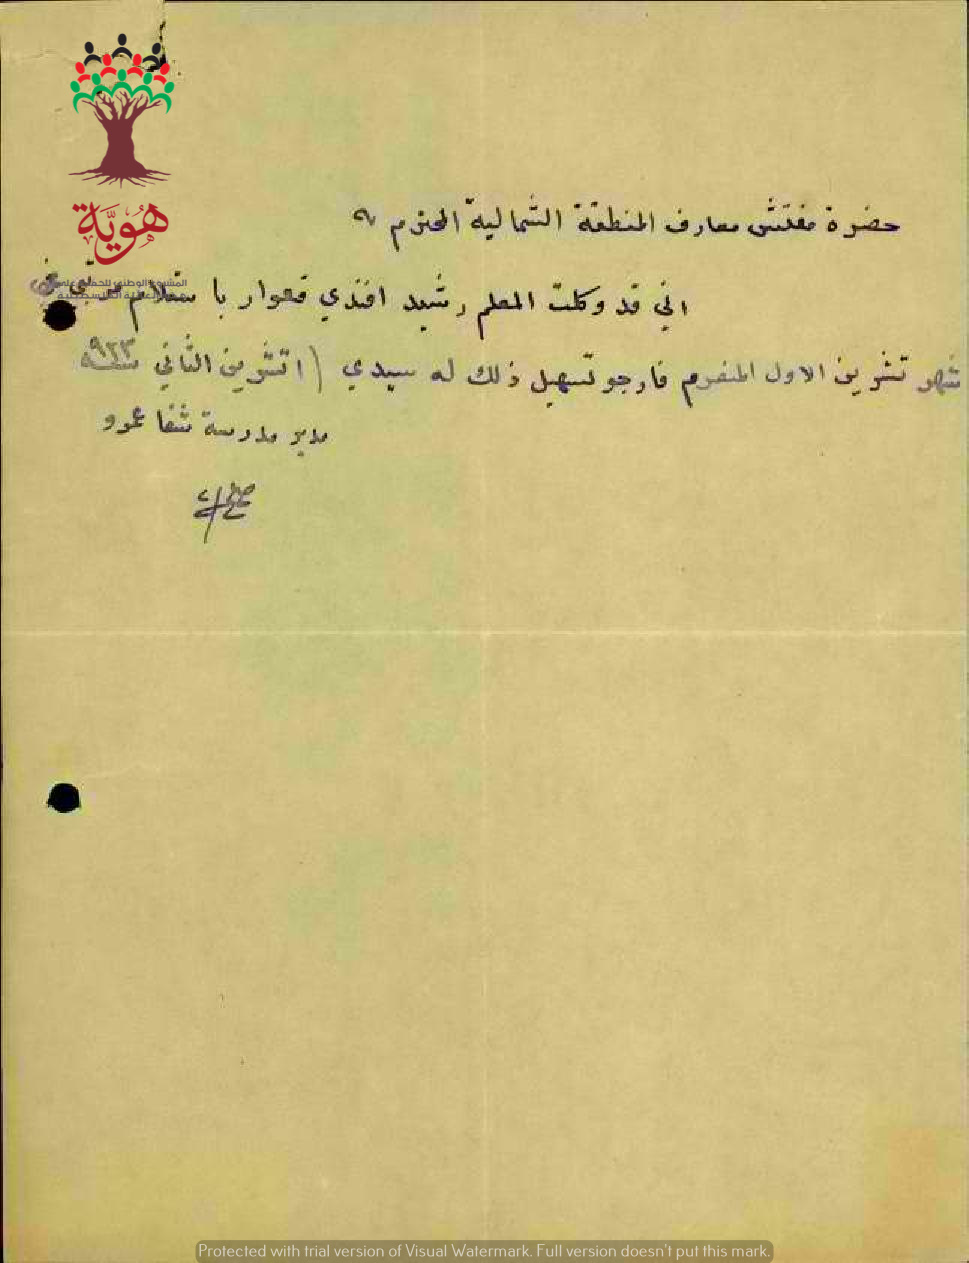 هوية
حضرة مفتش معارف المنطقة الشمالية المحترم
اني قد وكلت المعلم رشيد افندي قعوار باستلام
شهر تشرين الاول المنصرم فارجو تسهيل ذلك له سيدي ١ تشرين الثاني سنة ٩٢٣
مدير مدرسة شفا عمرو
Protected with trial version of Visual Watermark. Full version doesn't put this mark.